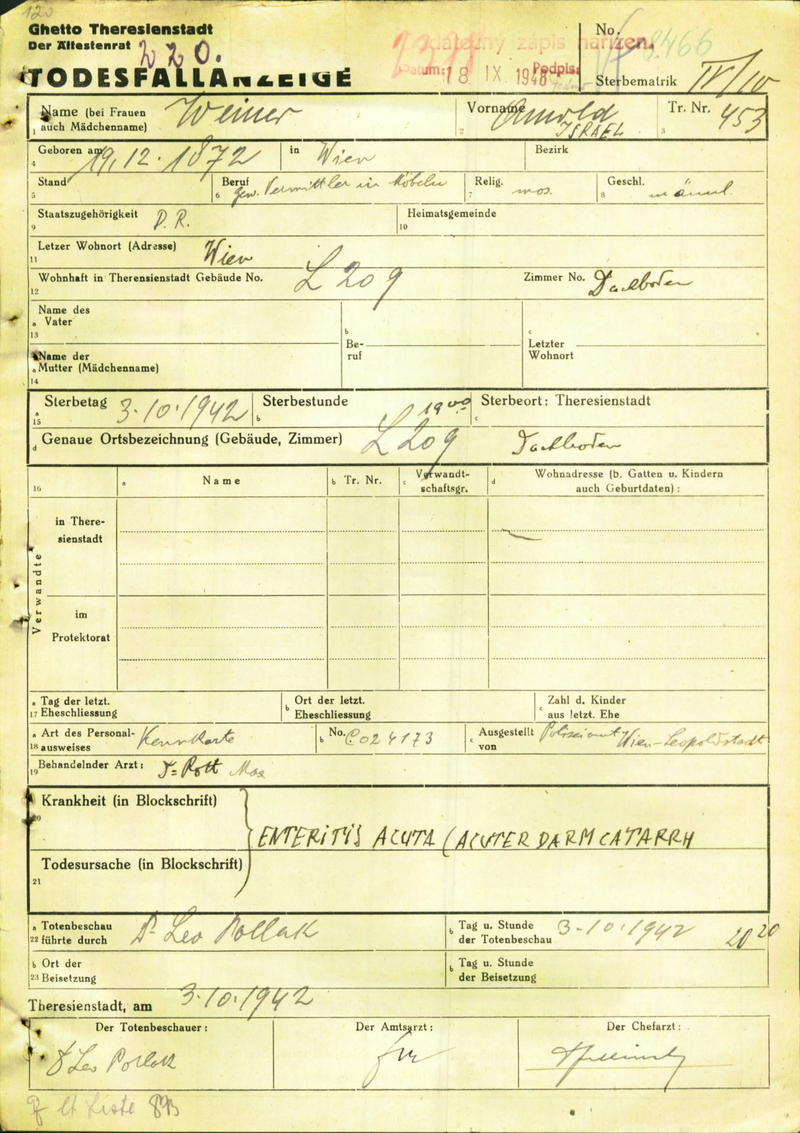 120
Ghetto Theresienstadt
Der Ältestenrat 220.
TODESFALLANZEIGE
Dodatečný zápis nařízen.
Datum: 18 IX. 1948 Podpis:
No. 8466
Sterbematrik IV/10
1 Name (bei Frauen auch Mädchenname) Weiner
2 Vorname Arnold ISRAEL
3 Tr. Nr. 453
4 Geboren am 19.12.1872 in Wien Bezirk
5 Stand
6 Beruf gew. Vermittler in Möbeln
7 Relig. mos.
8 Geschl. männl.
9 Staatszugehörigkeit D.R.
10 Heimatsgemeinde
11 Letzer Wohnort (Adresse) Wien
12 Wohnhaft in Therensienstadt Gebäude No. L 209 Zimmer No. Dachboden
13 a Name des Vater
14 a Name der Mutter (Mädchenname)
b Beruf
c Letzter Wohnort
15 a Sterbetag 3.10.1942 b Sterbestunde 19 00 c Sterbeort: Theresienstadt
d Genaue Ortsbezeichnung (Gebäude, Zimmer) L 209 Dachboden
16 a Name b Tr. Nr. c Verwandtschaftsgr. d Wohnadresse (b. Gatten u. Kindern auch Geburtdaten) :
Verwandte
in Theresienstadt
im Protektorat
17 a Tag der letzt. Eheschliessung
b Ort der letzt. Eheschliessung
c Zahl d. Kinder aus letzt. Ehe
18 a Art des Personalausweises Kennkarte
b No. C024173
c Ausgestellt von Polizeiamt Wien-Leopoldstadt
19 Behandelnder Arzt: Dr Pott Max
20 Krankheit (in Blockschrift)
ENTERITIS ACUTA (ACUTER DARMCATARRH
21 Todesursache (in Blockschrift)
22 a Totenbeschau führte durch Dr Leo Pollak
b Tag u. Stunde der Totenbeschau 3.10.1942 20 20
23 b Ort der Beisetzung
b Tag u. Stunde der Beisetzung
Theresienstadt, am 3.10.1942
Der Totenbeschauer: Der Amtsarzt: Der Chefarzt:
Dr Leo Pollak
lt Liste